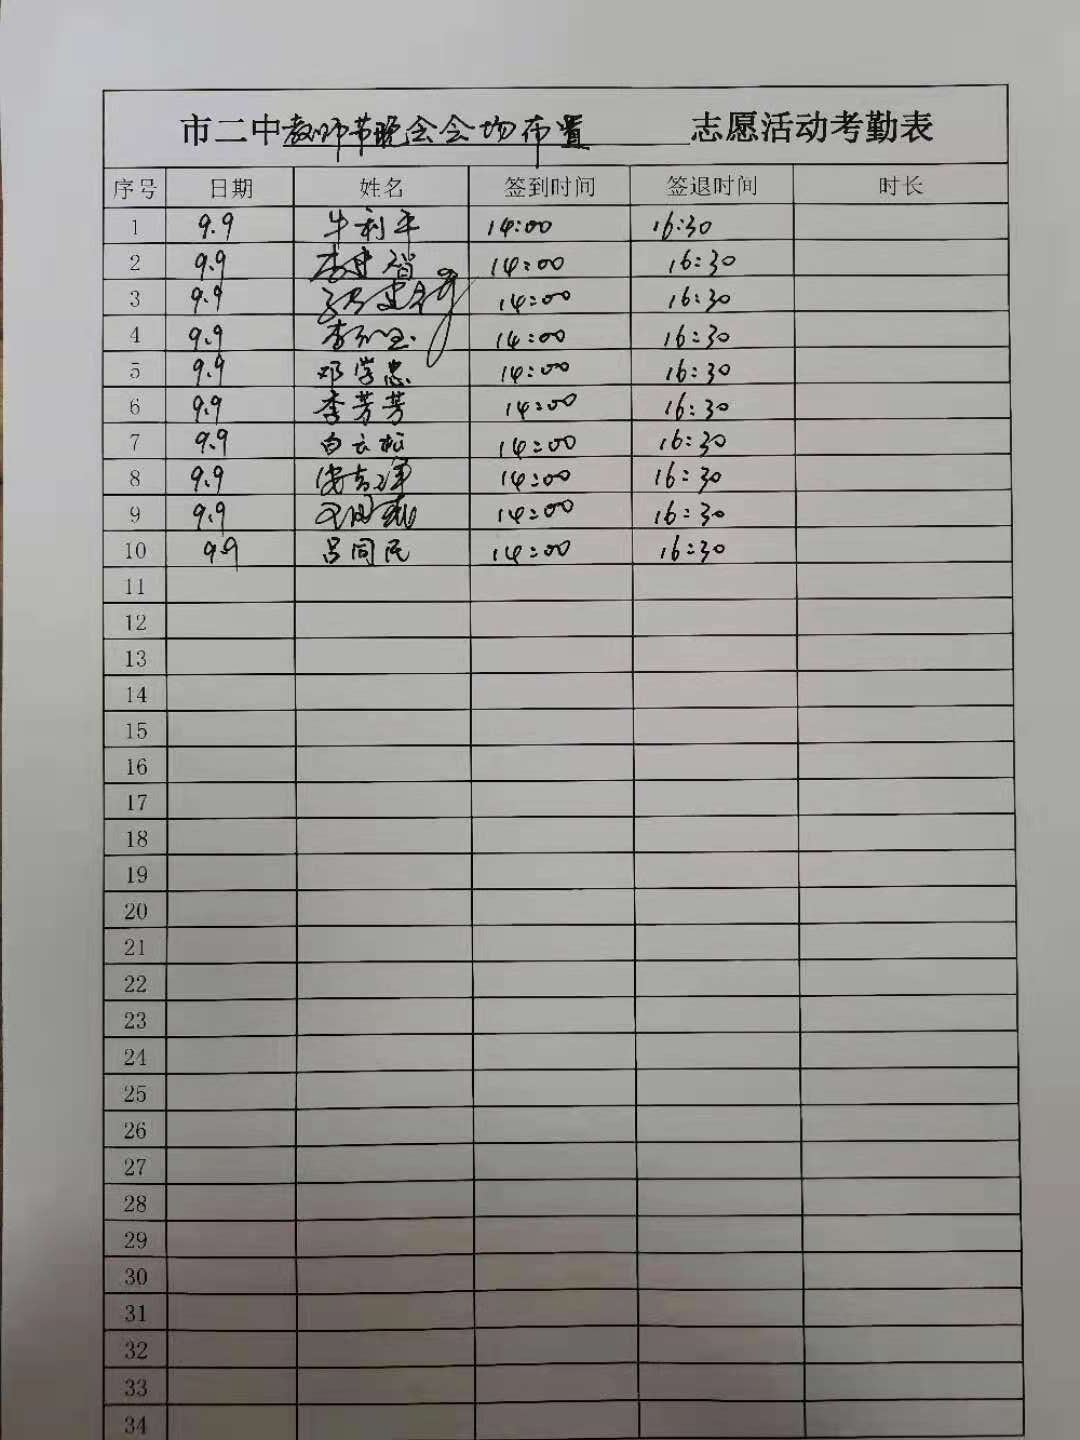 市二中教师节晚会会场布置 志愿活动考勤表
序号 日期 姓名 签到时间 签退时间 时长
1 9.9 牛利平 14:00 16:30
2 9.9 李建智 14:00 16:30
3 9.9 14:00 16:30
4 9.9 14:00 16:30
5 9.9 邓学忠 14:00 16:30
6 9.9 李芳芳 14:00 16:30
7 9.9 白云松 14:00 16:30
8 9.9 14:00 16:30
9 9.9 14:00 16:30
10 9.9 吕同民 14:00 16:30
11
12
13
14
15
16
17
18
19
20
21
22
23
24
25
26
27
28
29
30
31
32
33
34